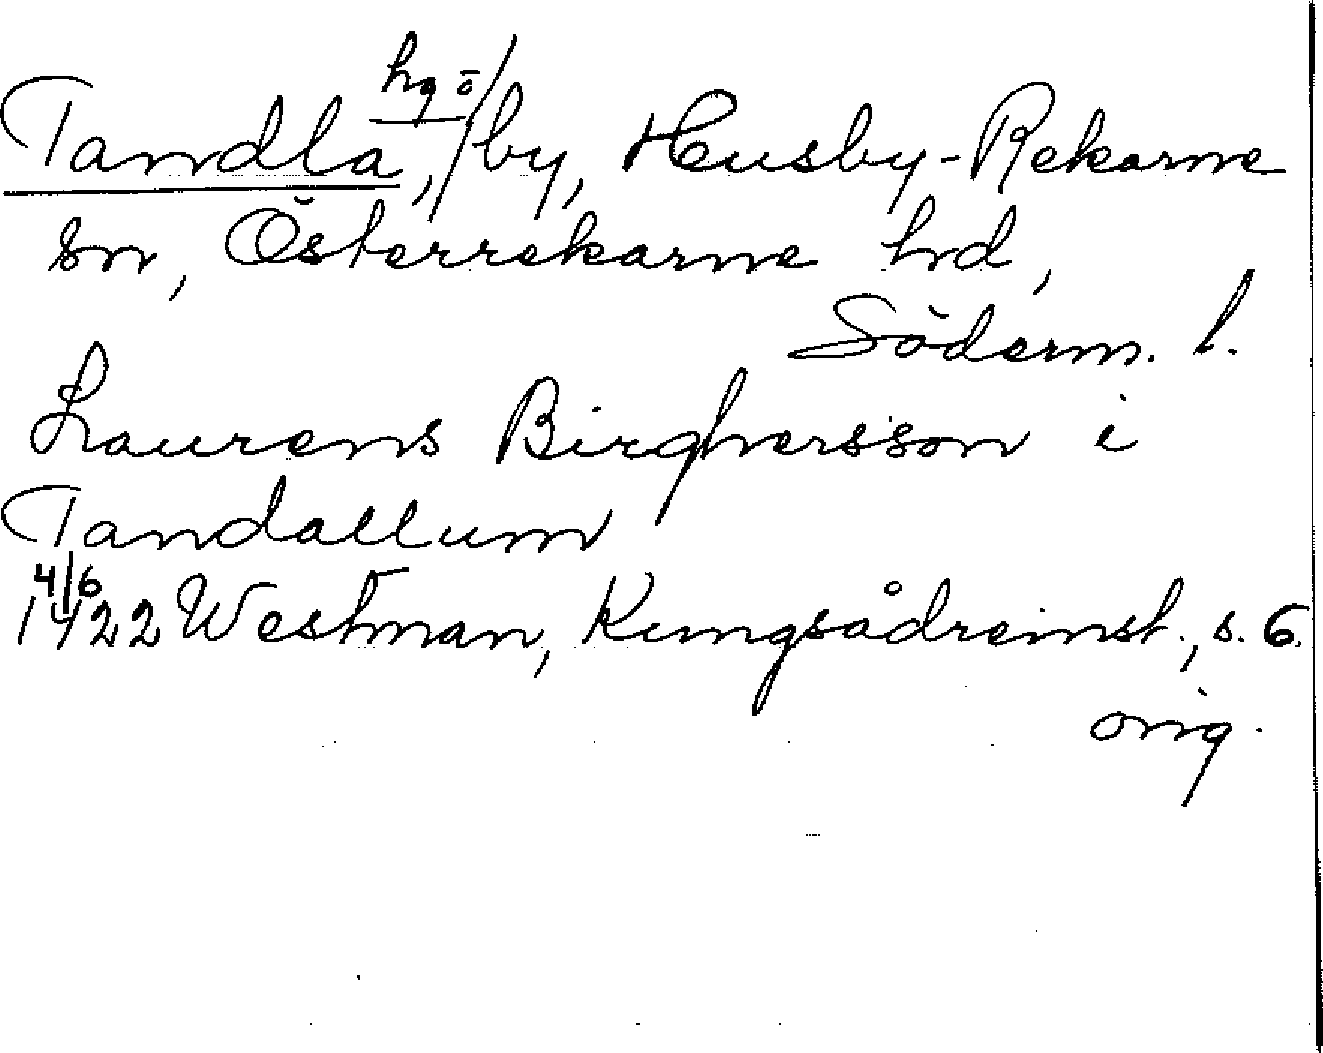 hg ö
Tandla, / by, Husby-Rekarne
sn, Österrekarne hd,
Söderm. l.
Laurens Birghersson i
Tandallum
4/6
1422 Westman, Kungsådreinst., s. 6.
orig.